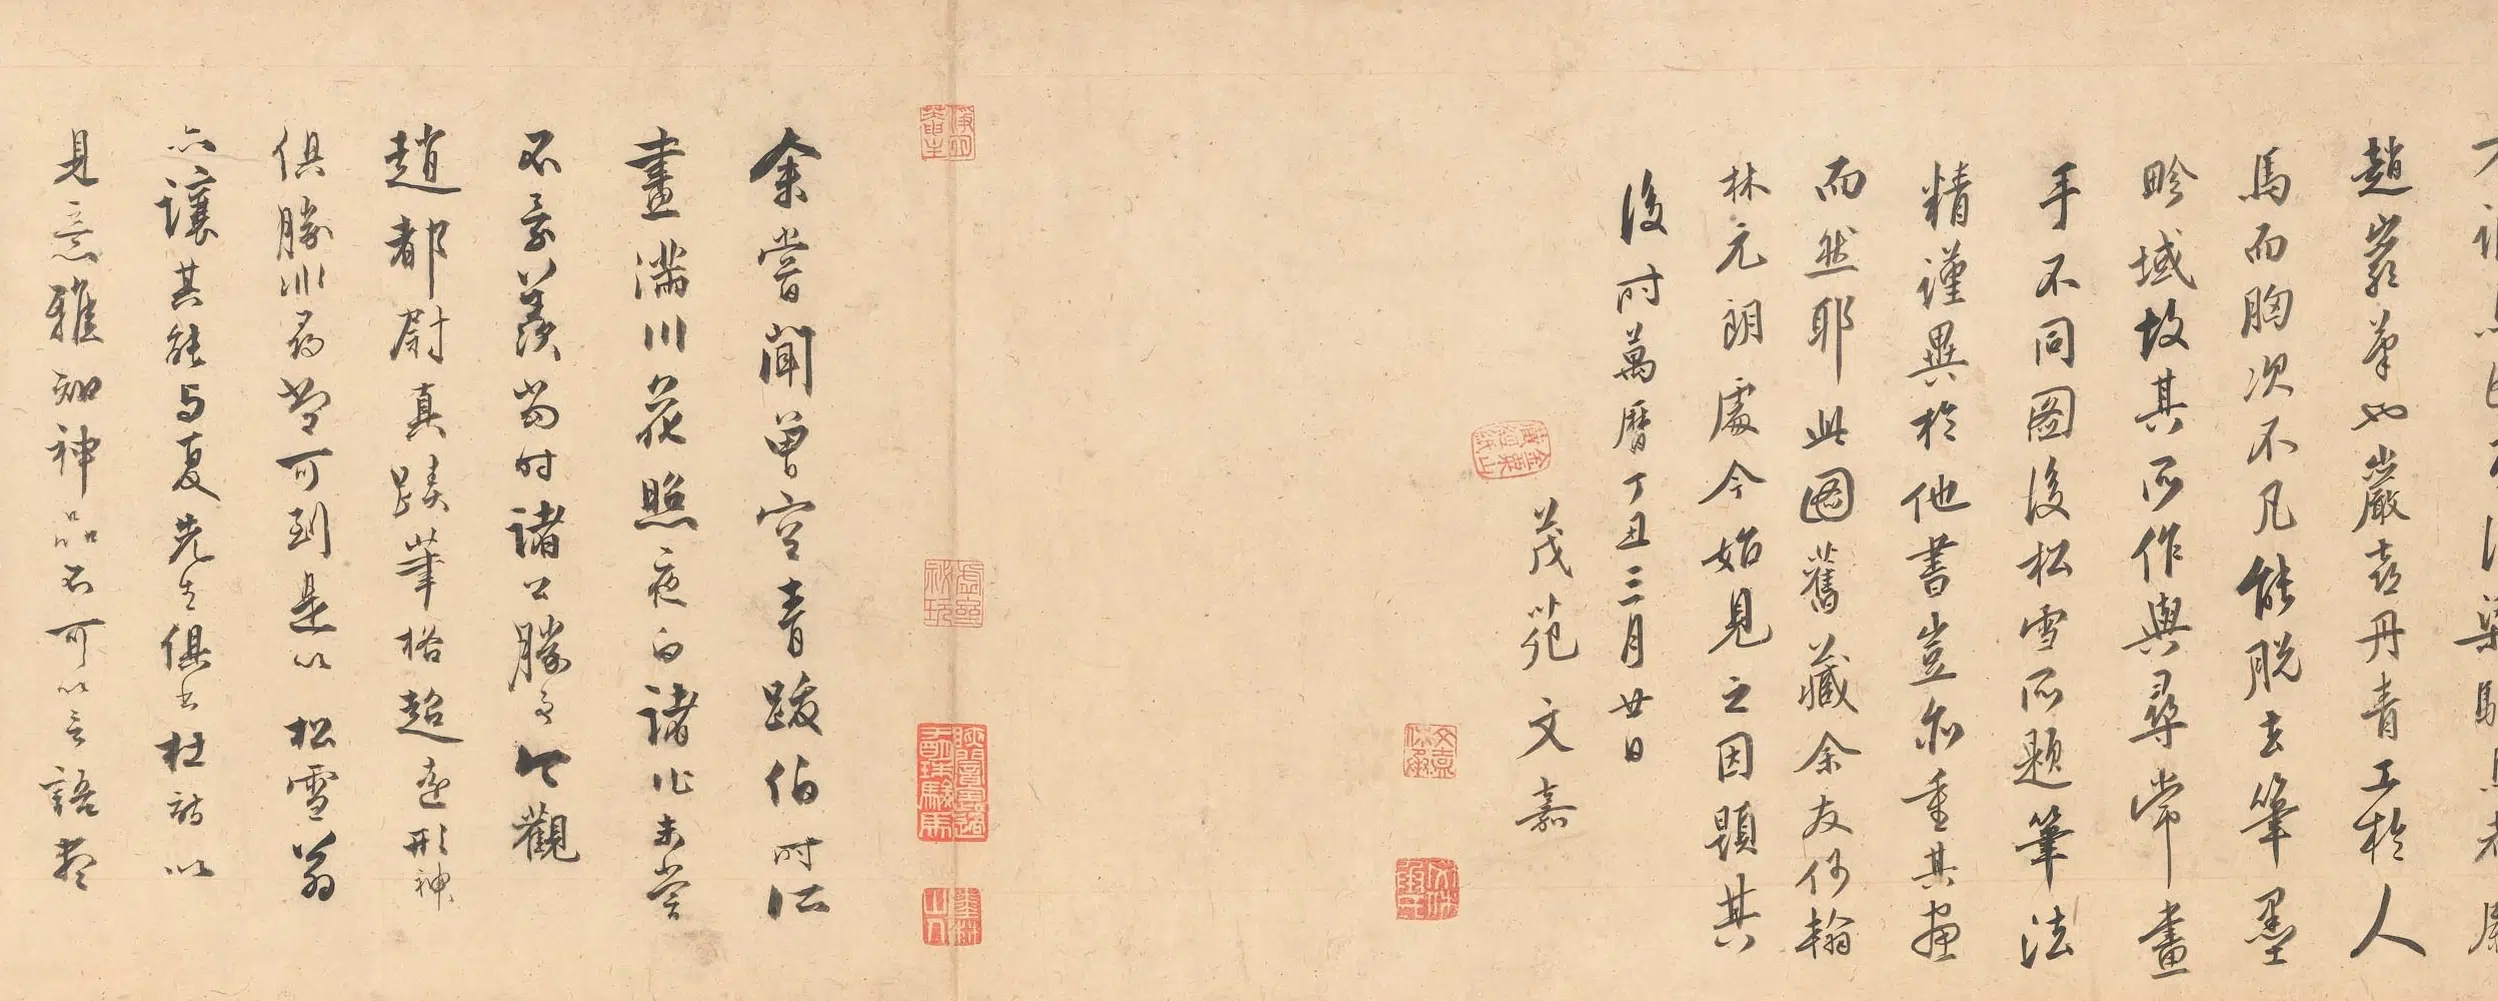 趙巖筆也巖喜丹青工於人
馬而胸次不凡能脫去筆墨
畛域故其所作與尋常畫
手不同圖後松雪所題筆法
精謹異於他書豈亦重其畫
而然耶此圖舊藏余友何翰
林元朗處今始見之因題其
後时萬曆丁丑三月廿日
茂苑文嘉
余嘗聞曾空青跋伯时
畫滿川花照夜白諸作未嘗
不羨當时諸公勝今觀
趙都尉真蹟筆格超遠形神
俱勝可到是以松雪翁
亦讓其能与夏先生俱書杜詩以
見意雅知神品不可以言語盡